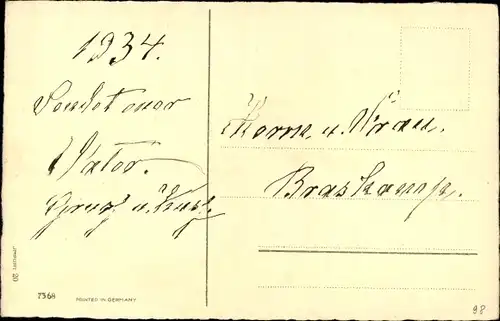 1934.
Sendet euer
Vater.
Gruß u. Kuß.
Herrn u. Frau.
Braskamp.
7368
PRINTED IN GERMANY
98